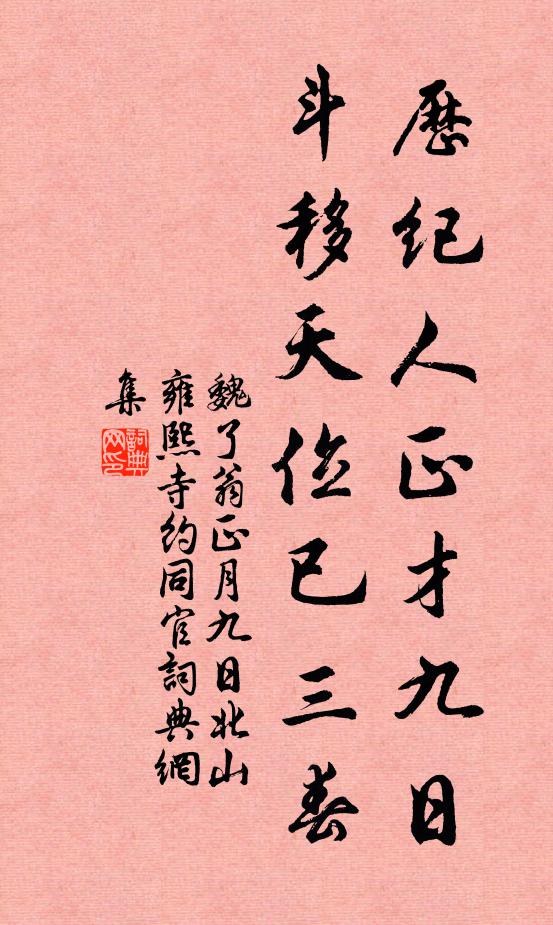 歷紀人正才九日
斗移天位已三春
魏了翁正月九日北山
雍熙寺約同官詞典網
集
詞典
网印